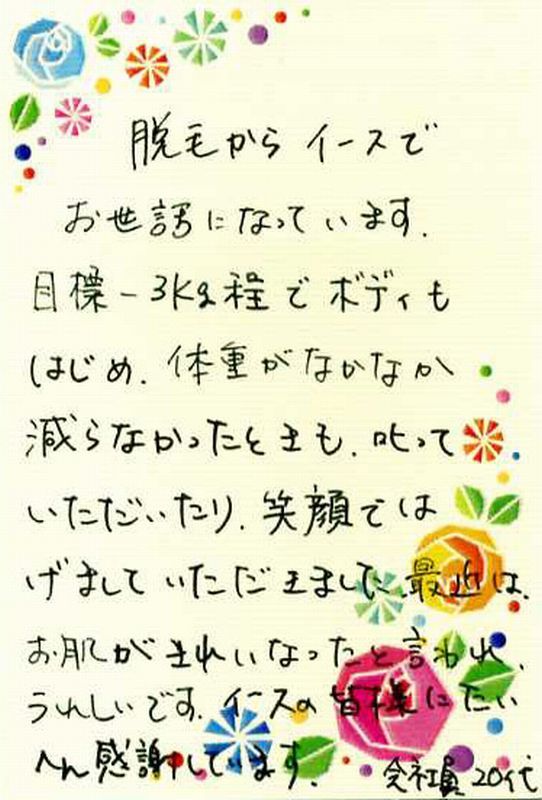 脱毛からイースで
お世話になっています.
目標-3Kg程でボディも
はじめ.体重がなかなか
減らなかったときも.叱って
いただいたり.笑顔では
げましていただきました.最近は.
お肌がきれいなったと言われ.
うれしいです.イースの皆様にたい
へん感謝しています.
会社員 20代